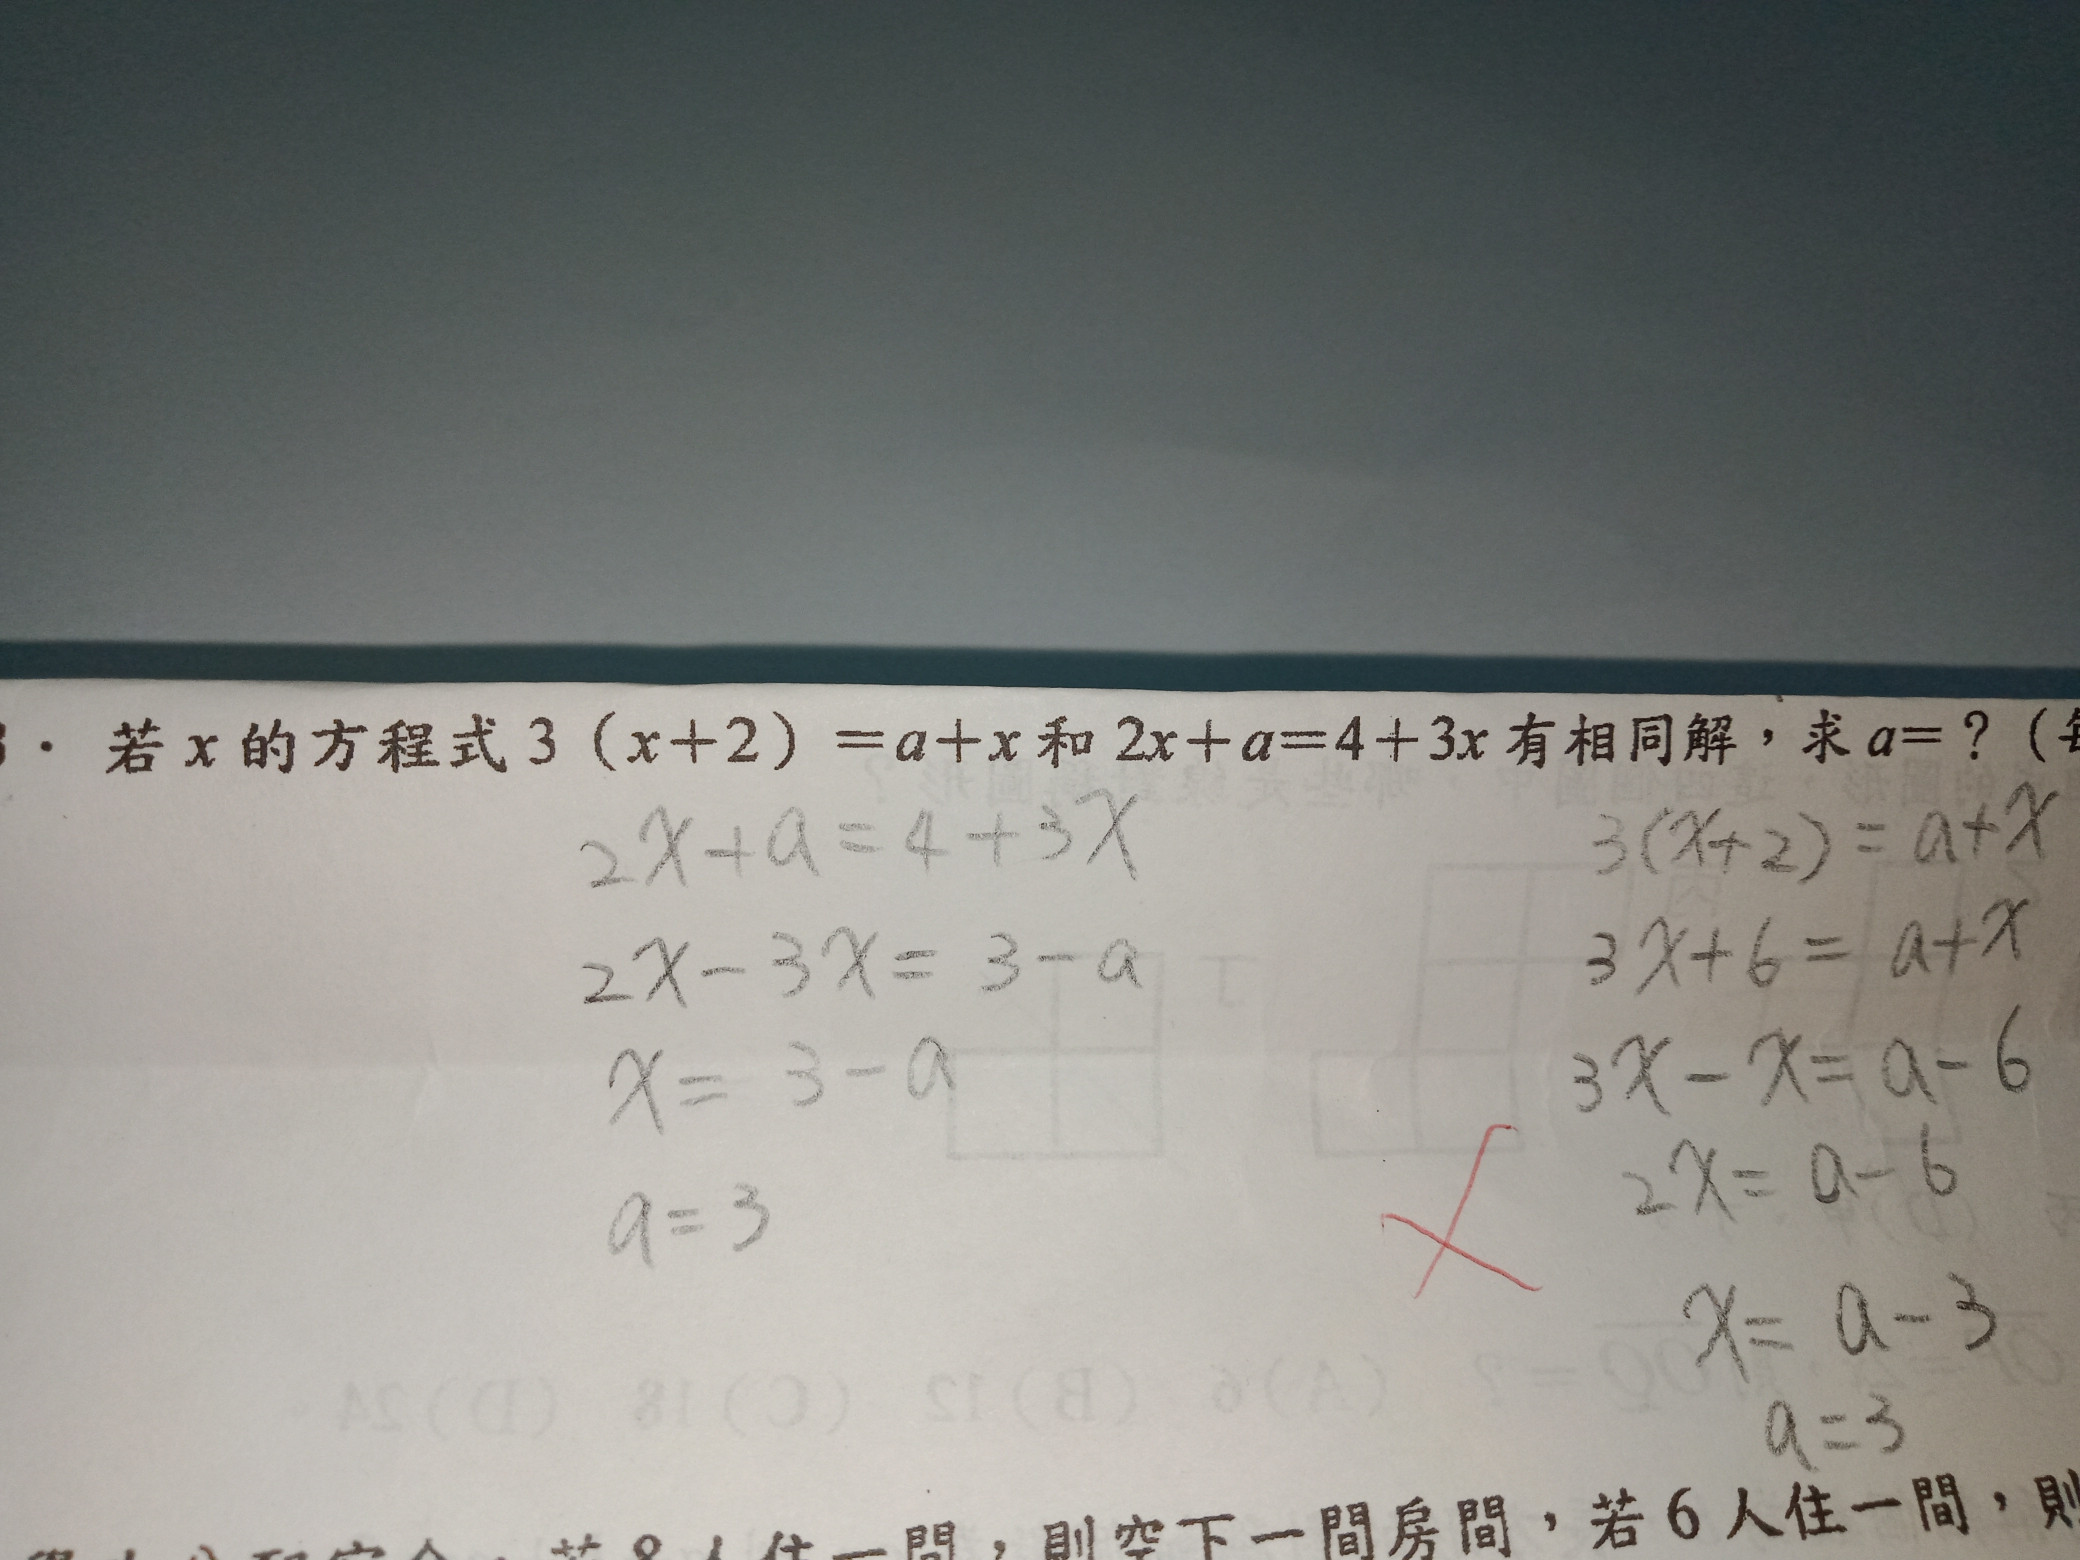 · 若 x 的方程式 3（x+2）=a+x 和 2x+a=4+3x 有相同解，求 a=？（
2x+a=4+3x
2x-3x=3-a
x=3-a
a=3
3(x+2)=a+x
3x+6=a+x
3x-x=a-6
2x=a-6
x=a-3
a=3
間，則空下一間房間，若 6 人住一間，則